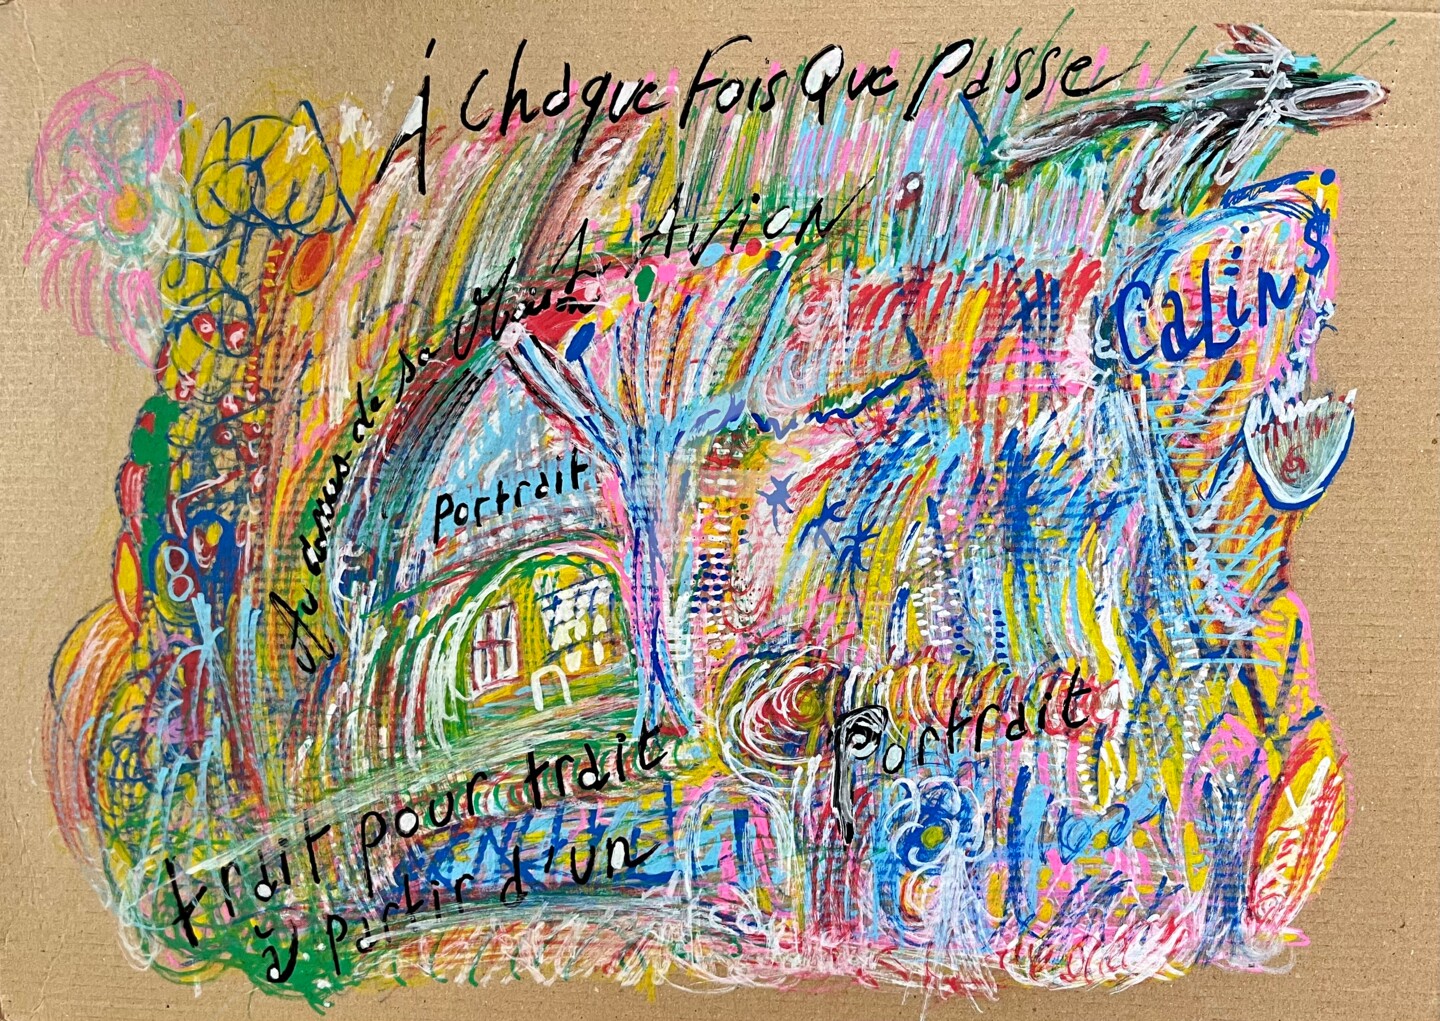 À Chaque Fois Que Passe
L'Avion
Au dessus de sa Maison
Calins
portrait
Portrait
trait pour trait
à partir d'un